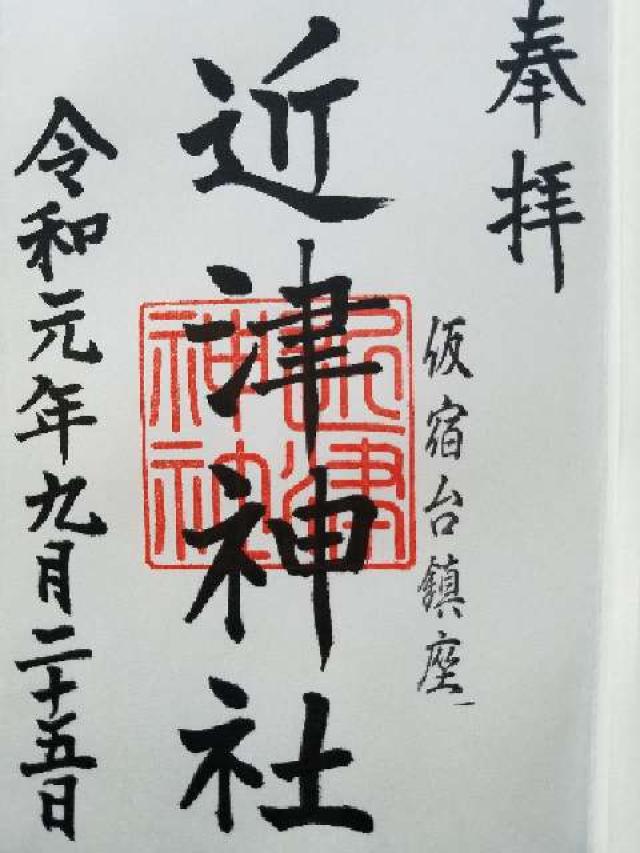 奉拝
仮宿台鎮座
近津神社
近津神社
令和元年九月二十五日